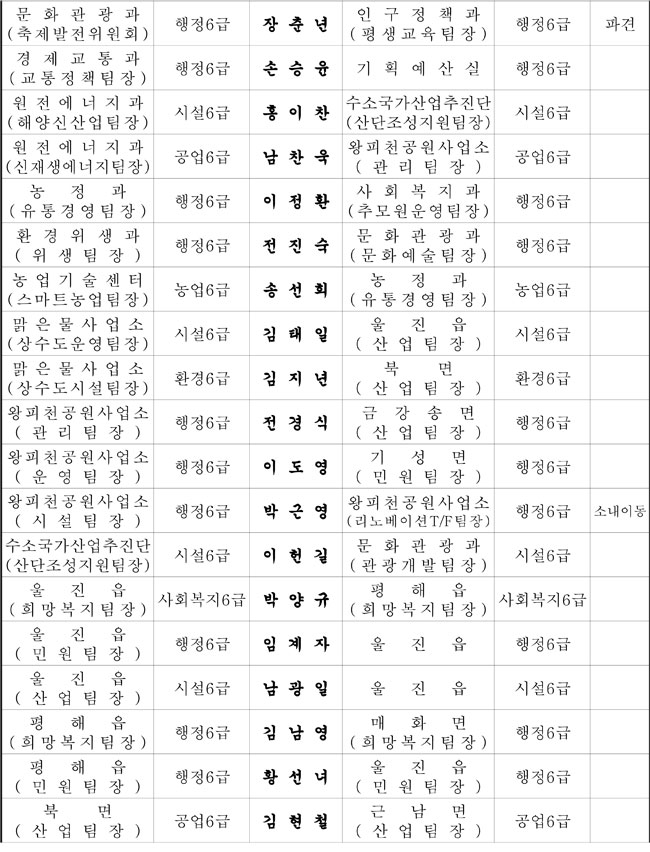 문화관광과 행정6급 장춘년 인구정책과 행정6급 파견
(축제발전위원회) (평생교육팀장)
경제교통과 행정6급 손승윤 기획예산실 행정6급
(교통정책팀장)
원전에너지과 시설6급 홍이찬 수소국가산업추진단 시설6급
(해양신산업팀장) (산단조성지원팀장)
원전에너지과 공업6급 남찬욱 왕피천공원사업소 공업6급
(신재생에너지팀장) (관리팀장)
농정과 행정6급 이정환 사회복지과 행정6급
(유통경영팀장) (추모원운영팀장)
환경위생과 행정6급 전진숙 문화관광과 행정6급
(위생팀장) (문화예술팀장)
농업기술센터 농업6급 송선희 농정과 농업6급
(스마트농업팀장) (유통경영팀장)
맑은물사업소 시설6급 김태일 울진읍 시설6급
(상수도운영팀장) (산업팀장)
맑은물사업소 환경6급 김지년 북면 환경6급
(상수도시설팀장) (산업팀장)
왕피천공원사업소 행정6급 전경식 금강송면 행정6급
(관리팀장) (산업팀장)
왕피천공원사업소 행정6급 이도영 기성면 행정6급
(운영팀장) (민원팀장)
왕피천공원사업소 행정6급 박근영 왕피천공원사업소 행정6급 소내이동
(시설팀장) (리노베이션T/F팀장)
수소국가산업추진단 시설6급 이헌길 문화관광과 시설6급
(산단조성지원팀장) (관광개발팀장)
울진읍 사회복지6급 박양규 평해읍 사회복지6급
(희망복지팀장) (희망복지팀장)
울진읍 행정6급 임계자 울진읍 행정6급
(민원팀장)
울진읍 시설6급 남광일 울진읍 시설6급
(산업팀장)
평해읍 행정6급 김남영 매화면 행정6급
(희망복지팀장) (희망복지팀장)
평해읍 행정6급 황선녀 울진읍 행정6급
(민원팀장) (민원팀장)
북면 공업6급 김현철 근남면 공업6급
(산업팀장) (산업팀장)